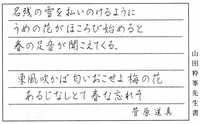 名残の雪を払いのけるように
うめの花がほころび始めると
春の足音が聞こえてくる。
東風吹かば匂いおこせよ梅の花
あるじなしとて春な忘れそ
菅原道真
山田粋峯先生書